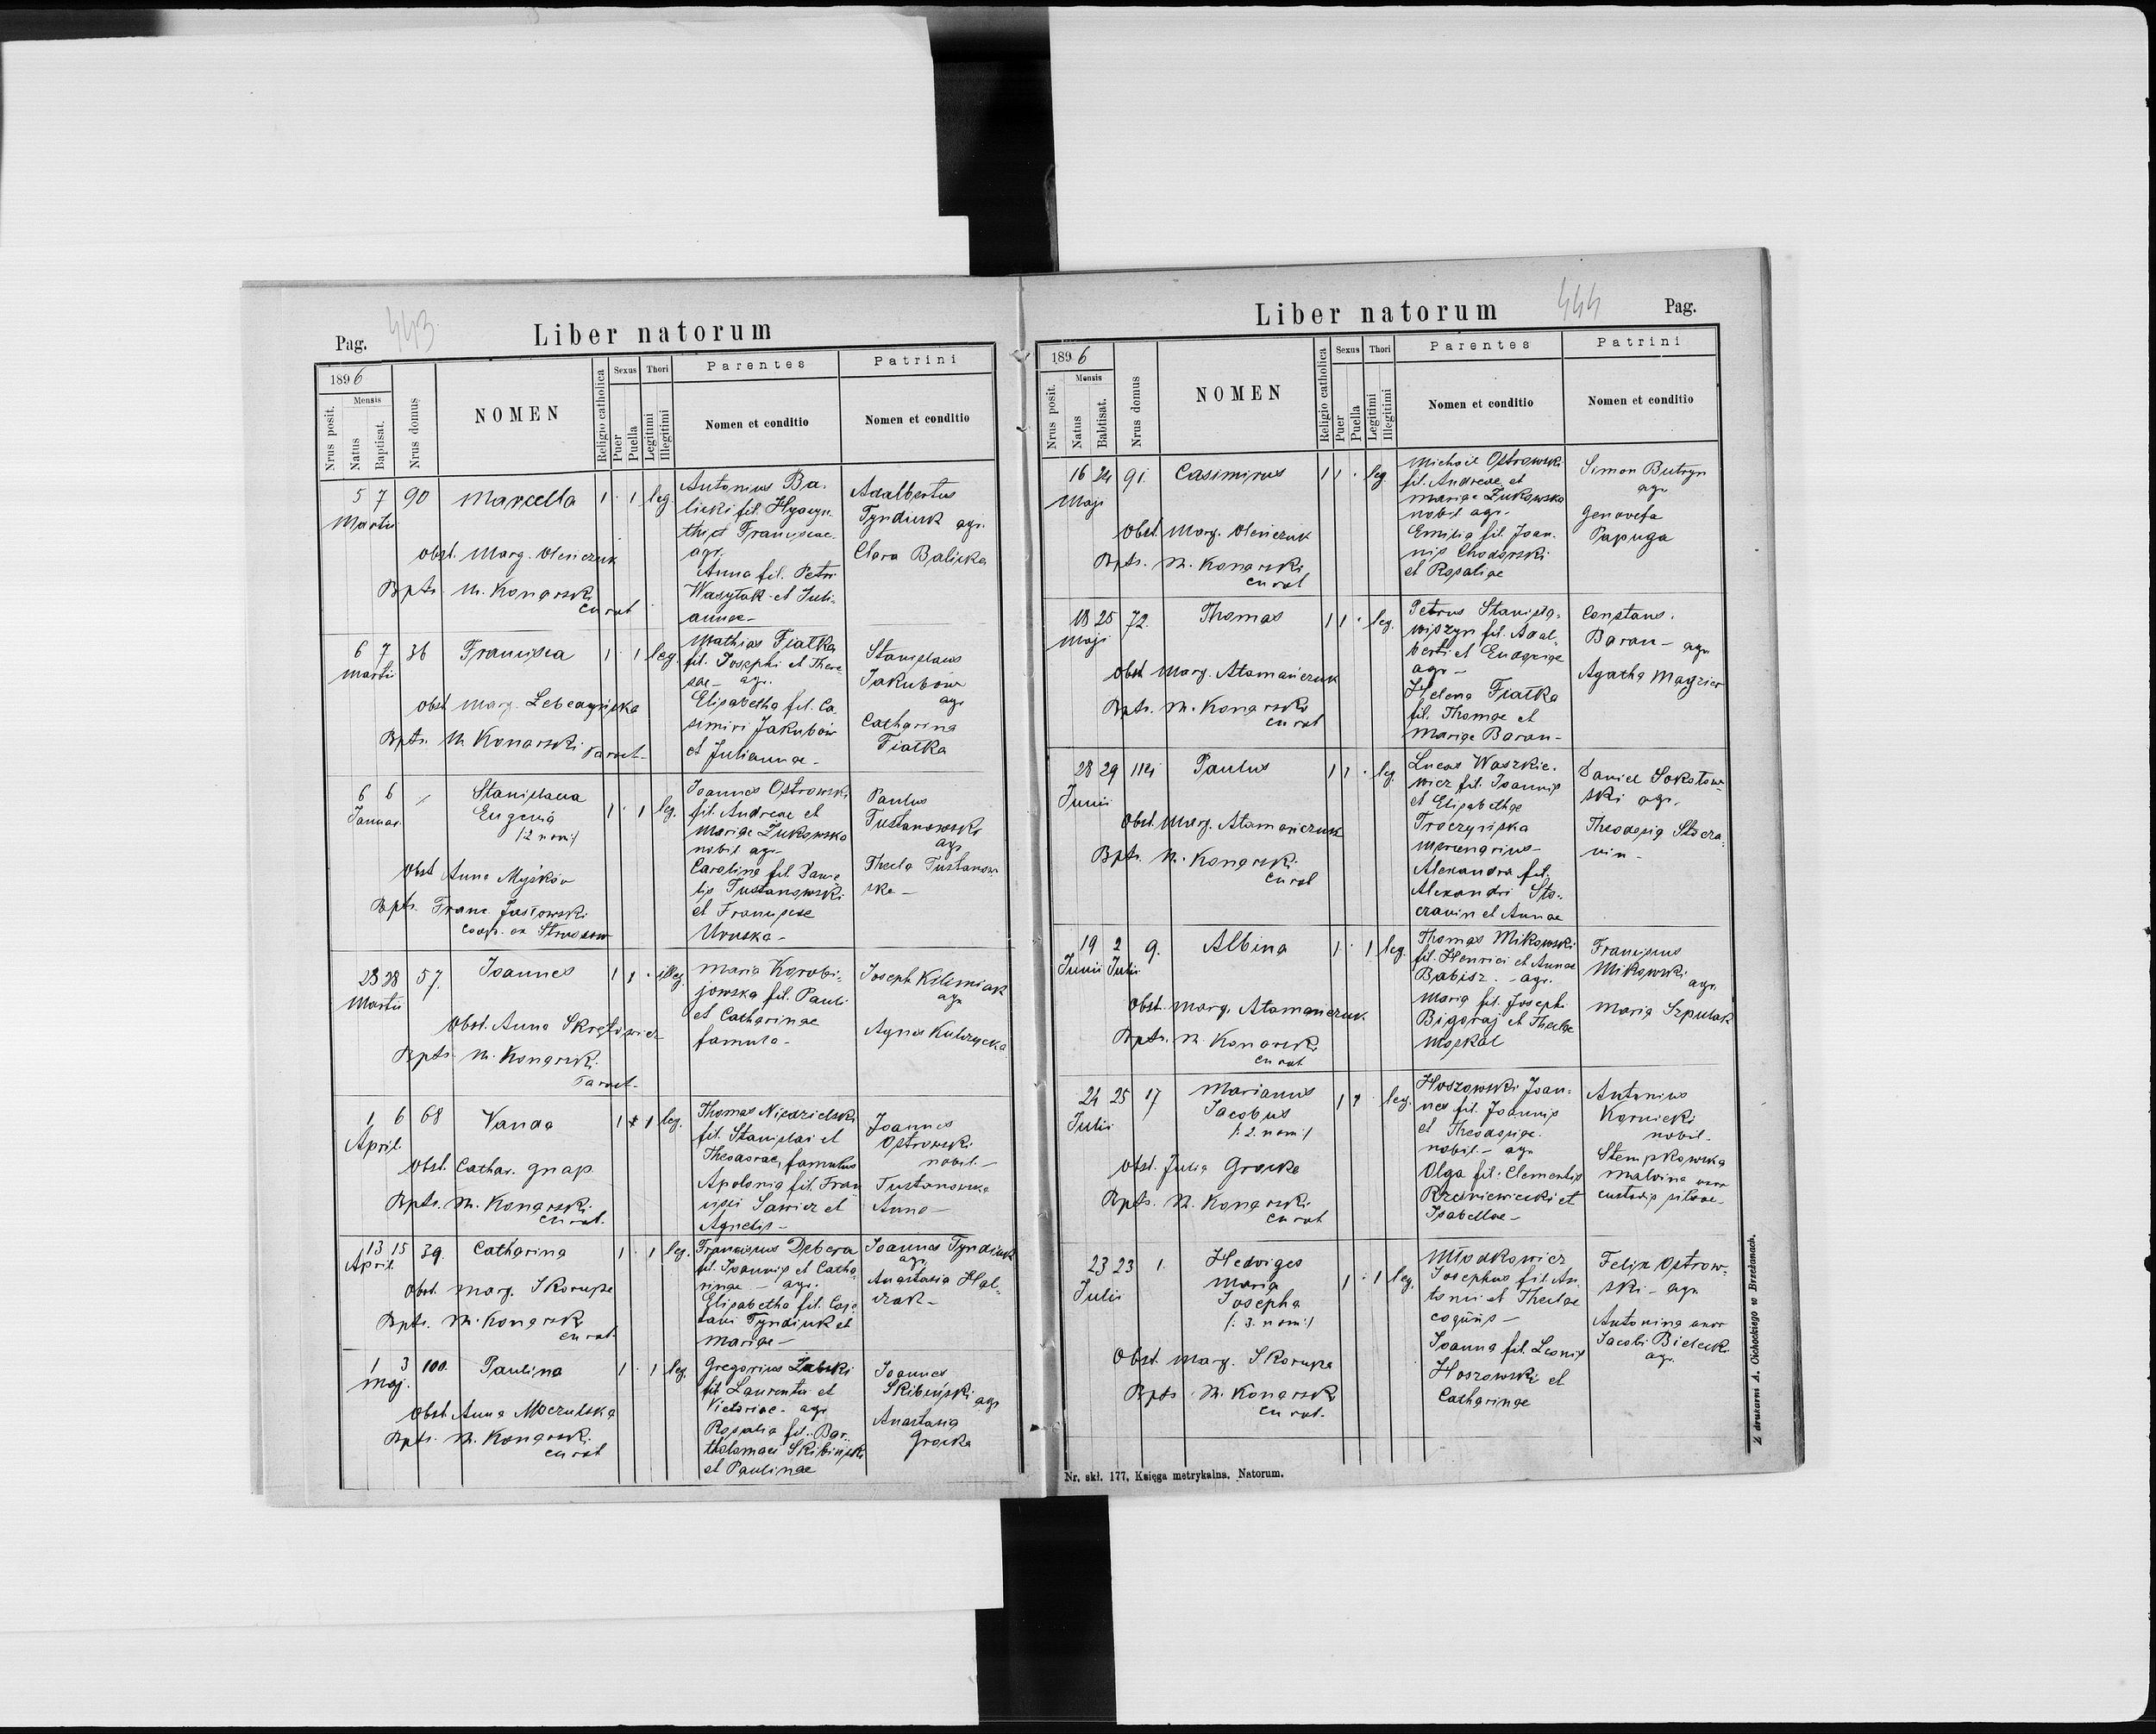 Pag.
443
Liber natorum
1896
Mensis
Nrus posit.
Natus
Baptisat.
Nrus domus
NOMEN
Religio catholica
Sexus
Puer
Puella
Thori
Legitimi
Illegitimi
Parentes
Nomen et conditio
Patrini
Nomen et conditio
5 7 90 Marcella 1 · 1 leg.
Martii
Obst. Marg. Oleńczuk
Bpts. M. Konarski
curat
Antonius Ba-
licki fil. Hyacyn-
thi et Franciscae
agr.
Anna fil. Petri
Wasylak et Juli-
annae-
Adalbertus
Tyndiuk agr.
Clara Balicka
6 7 36 Francisca 1 · 1 leg.
Martii
Obst. Marg.
Bpts. M. Konarski
Mathias Fiałka
fil. Josephi et There
sae - agr.
Elisabetha fil. Ca
simiri Jakubów
et Juliannae-
Stanislaus
Jakubów
agr
Catharina
Fiałka
6 6 Stanislava 1 · 1 leg.
Januar. Eugenia
/:2 nom:/
Obst Anna Myśków
Bpts. Franc.
coop. ex
Joannes Ostrowski
fil. Andreae et
Mariae Żukowska
nobil agr-
Carolina fil.
Tustanowski
et Franciscae
Paulus
Tustanowski
agr
Thecla Tustanow
ska-
23 28 57. Joannes 1 1 · illeg.
Martii
Obst. Anna
Bpts. M. Konarski
Maria Korobi-
jowska fil. Pauli
et Catharinae
famula-
Joseph Kilimiak
agr
Agnes
1 6 68 Vanda 1 · 1 leg.
April.
Obst. Cathar. Gnap.
Bpts. M. Konarski
curat.
Thomas Niedzielski
fil. Stanislai et
Theodorae, famulus
Apolonia fil. Fran
cisci Sawicz et
Agnetis-
Joannes
Ostrowski
nobil.-
Tustanowska
Anna-
13 15 39. Catharina 1 · 1 leg.
April
Obst. Marg. Skorupa
Bpts. M. Konarski
curat
Franciscus Debera
fil. Joannis et Catha
rinae - agr.
Elisabetha fil. Caje
tani Tyndiuk et
Mariae-
Joannes Tyndiuk
agr
Anastasia Hal-
czak-
1 3 100. Paulina 1 · 1 leg.
Maj.
Obst. Anna Moczulska
Bpts. M. Konarski
curat
Gregorius Żabski
fil. Laurentii et
Victoriae- agr
Rosalia fil. Bar-
tholomaei Skibiński
et Paulinae
Joannes
Skibiński agr
Anastasia
Grocka
Liber natorum
444
Pag.
1896
Mensis
Nrus posit.
Natus
Babtisat.
Nrus domus
NOMEN
Religio catholica
Sexus
Puer
Puella
Thori
Legitimi
Illegitimi
Parentes
Nomen et conditio
Patrini
Nomen et conditio
16 24 91. Casimirus 1 1 · leg.
Maji
Obst. Marg. Oleńczuk
Bpts. M. Konarski
curat
Michael Ostrowski
fil. Andreae et
Mariae Żukowska
nobil agr-
Emilia fil. Joan-
nis Chodorski
et Rosaliae
Simon Butryn
agr
Genovefa
Papuga
18 25 72. Thomas 1 1 · leg.
Maji
Obst Marg. Atamańczuk
Bpts. M. Konarski
curat
Petrus Stanisła-
wiszyn fil. Adal-
berti et Eudoxiae
agr-
Helena Fiałka
fil. Thomae et
Mariae Baran-
Constans.
Baran- agr
Agatha
28 29 114 Paulus 1 1 · leg.
Junii
Obst. Marg. Atamańczuk
Bpts. M. Konarski
curat
Lucas Waszkie-
wicz fil. Joannis
et Elisabethae
Troczyńska
mercenarius-
Alexandra fil.
Alexandri Sto-
czanin et Annae
Daniel Sokołow-
ski agr.
Theodosia
19 2 9. Albina 1 · 1 leg.
Junii Julii
Obst. Marg. Atamańczuk
Bpts. M. Konarski
curat
Thomas Mikowski
fil. Henrici et Annae
Babisz - agr.
Maria fil. Josephi
Bigoraj et Theclae
Moskal
Franciscus
Mikowski
agr.
Maria Szpulak
24 25 17 Marianus 1 1 · leg.
Julii Jacobus
/: 2. nom:/
Obst. Julia Grocka
Bpts. M. Konarski
curat
Hoszowski Joan-
nes fil. Joannis
et Theodosiae.
nobil.- agr
Olga fil. Clementis
et
Isabellae-
Antonius
Kornicki
nobil-
Stempkowska
Malvina uxor
custodis silvae-
23 23 1. Hedviges 1 · 1 leg.
Julii Maria
Josepha
/: 3. nom:/
Obst. Marg. Skorupa
Bpts. M. Konarski
curat.
Młodkowicz
Josephus fil. An-
tonii et Theclae
Joanna fil. Leonis
Hoszowski et
Catharinae
Felix Ostrow-
ski- agr
Antonina uxor
Jacobi Bielecki
agr.
Nr. skł. 177. Księga metrykalna. Natorum.
Z drukarni A. Cichockiego w Brzeżanach.